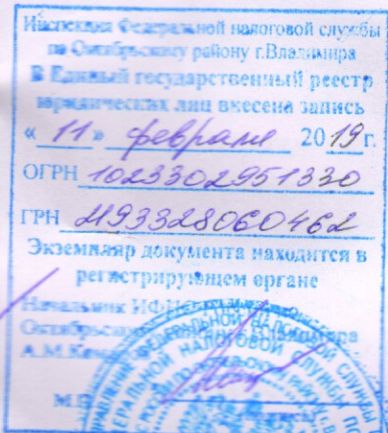 Инспекция Федеральной налоговой службы
по Октябрьскому району г.Владимира
В Единый государственный реестр
юридических лиц внесена запись
« 11 » февраля 2019 г.
ОГРН 1023302951330
ГРН 2193328060462
Экземпляр документа находится в
регистрирующем органе
Начальник
А.М.